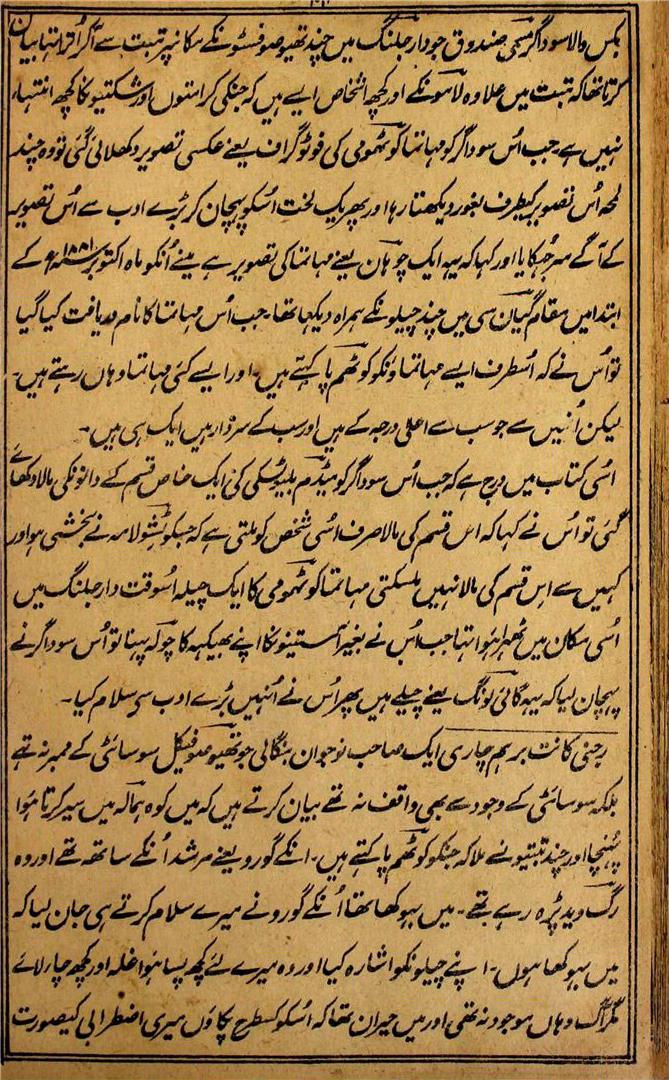 بکس والا سوداگر مسمی صندوق جو دارجلنگ میں چند تھیوصوفسٹونکے مکانپر تبت سے آکر اُترا تہا بیان
کرتا تھا کہ تبت میں علاوہ لامونکے اور کچھ اشخاص ایسے ہیں کہ جنکی کراستوں اور شکتیونکا کچھ انتہاء
نہیں ہے۔ جب اُس سوداگر کو مہاتما کوٹھومی کی فوٹوگراف یعنے عکسی تصویر دکھلائی گئی تو وہ چند
لمحہ اُس تصویر کیطرف بغور دیکھتا رہا اور پھر یک لخت اسکو پہچان کر بڑے ادب سے اُس تصویر
کے آگے سر جُہکایا اور کہا کہ یہہ ایک چوہان یعنے مہاتما کی تصویر ہے مینے اُنکو ماہ اکتوبر ۱۸۸۱ء کے
ابتدا میں مقام گیان سی میں چند چیلونکے ہمراہ دیکہا تھا۔ جب اُس مہاتما کا نام دریافت کیا گیا
تو اُس نے کہ اُسطرف ایسے مہاتماونکو کوٹھم پا کہتے ہیں۔ اور ایسے کئی مہاتما وہاں رہتے ہیں۔
لیکن اُنمیں سے جو سب سے اعلی درجہ کے ہیں اور سب کے سردار ہیں ایک ہی ہیں۔
اسی کتاب میں درج ہے کہ جب اُس سوداگر کو میڈم بلیوٹسکی کی ایک خاص قسم کے دانونکی مالا دکھائے
گئی تو اُس نے کہا کہ اس قسم کی مالا صرف اُسی شخص کو ملتی ہے کہ جسکو ٹیشو لامہ نے بخشی ہو اور
کہیں سے اِس قسم کی مالا نہیں ملسکتی مہاتما کوٹھومی کا ایک چیلہ اُسوقت دارجلنگ میں
اُسی مکان میں ٹھرا ہوا تہا جب اُس نے بغیر آستینونکا اپنے بھیکہہ کا چولہ پہنا تو اُس سوداگر نے
پہچان لیا کہ یہہ گائی لونگ یعنے چیلے ہیں پھر اُس نے اُنہیں بڑے ادب سے سلام کیا۔
رجنی کانت برہم چاری ایک صاحب نوجوان بنگالی جو تھیوصوفیکل سوسائٹی کے ممبر نہ تھے
بلکہ سوسائٹی کے وجود سے بھی واقف نہ تھے بیان کرتے ہیں کہ میں کوہ ہمالہ میں سیر کرتا ہوا
پہُنچا اور چند تبتیونسے ملا کہ جنکو کوٹھم پا کہتے ہیں۔ انکے گورو یعنے مرشد اُنکے ساتھہ تھے اور وہ
رگ وید پڑہ رہے تھے۔ میں بہوکھا تھا اُنکے گورو نے میرے سلام کرتے ہی جان لیا کہ
میں بہوکھا ہوں۔ اپنے چیلونکو اشارہ کیا اور وہ میرے لئے کچھ پسا ہوا غلہ اور کچھ چار لائے
مگر آگ وہاں موجود نہ تھی اور میں حیران تھا کہ اسکو کسطرح پکاؤں میری اضطرابی کیصورت